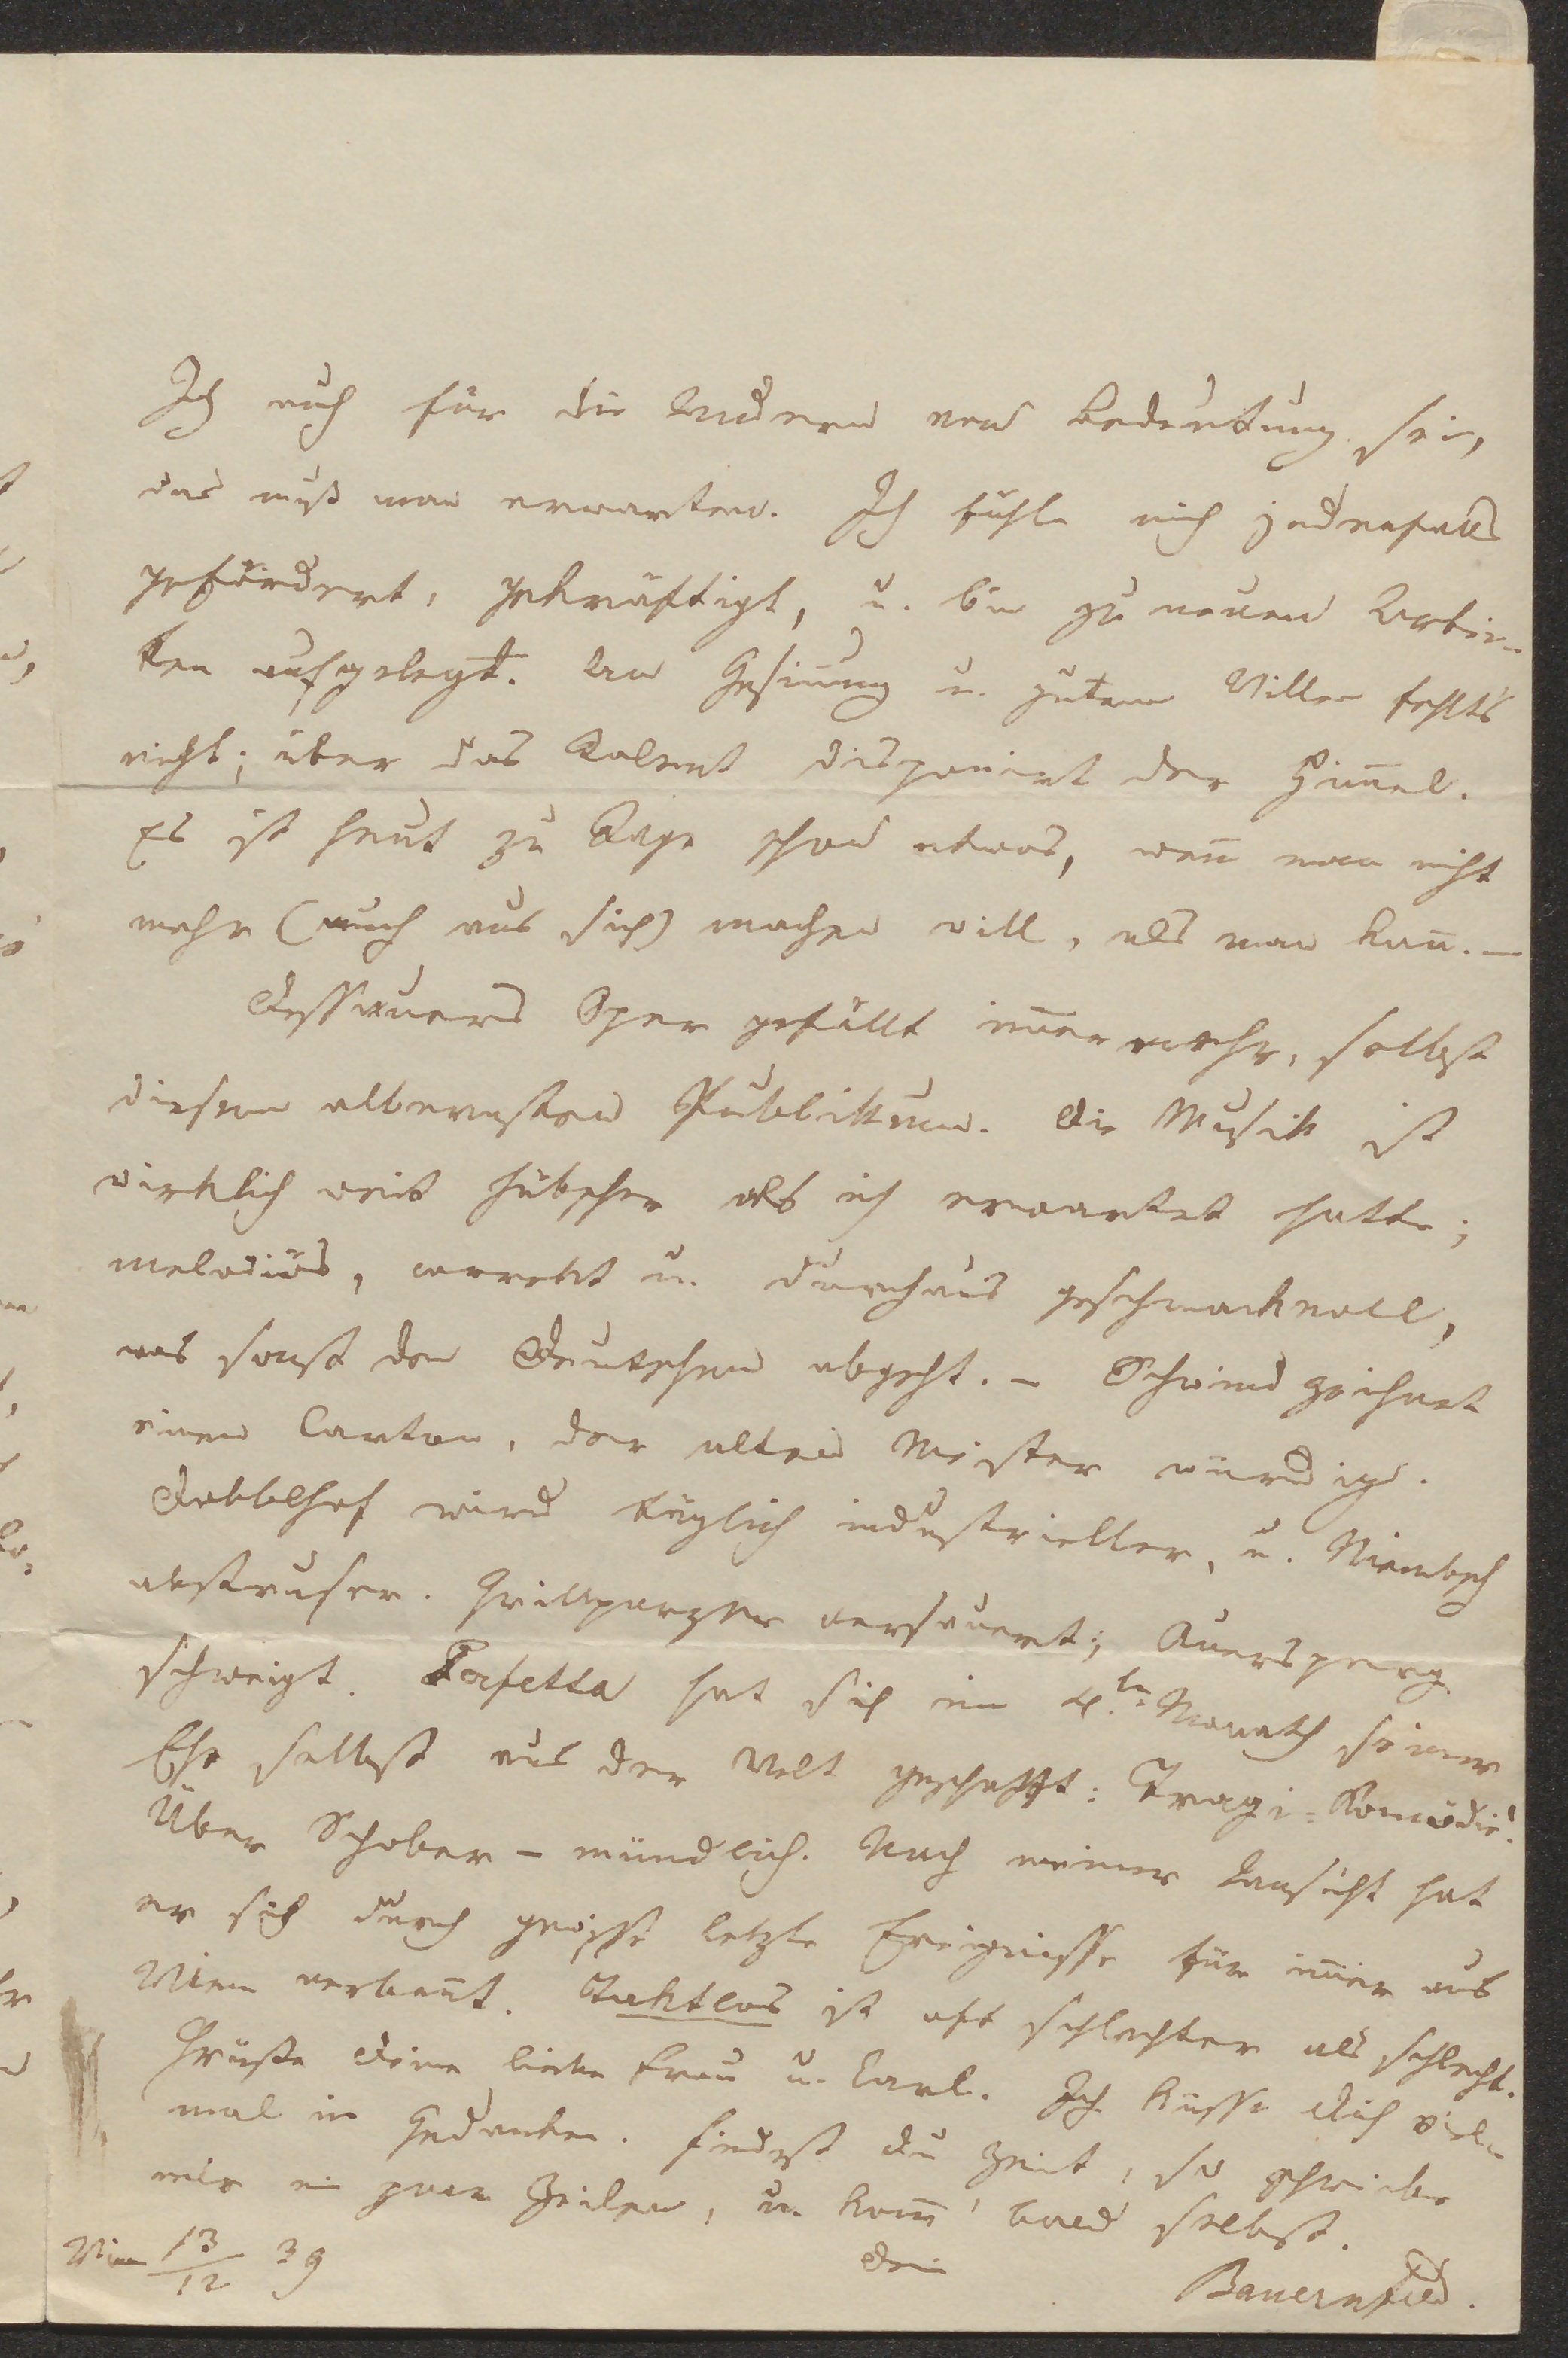 Ich auch für die Andern von Bedeutung sei,
das muß man erwarten. Ich fühle mich jedenfalls
gefördert, gekräftigt, u. bin zu neuen Arbei-
ten aufgelegt. An Gesinnung u. gutem Willen fehlt's
nicht; über das Talent disponirt der Him̄el.
Es ist heut zu Tage schon etwas, wen̄ man nicht
mehr (auch aus sich) machen will, als man kan̄. –
Dessauers Oper gefällt im̄er mehr, selbst
diesem albernsten Publikum. Die Musik ist
wirklich weit hübscher als ich erwartet hatte;
melodiös, correkt u. durchaus geschmackvoll,
was sonst den Deutschen abgeht. – Schwind zeichnet
einen Carton, der alten Meister würdig.
Doblhof wird täglich industrieller, u. Niembsch
abstruser. Grillparzer versauert; Auersperg
schweigt. Tafetta hat sich im 4.ten Monath seiner
Ehe selbst aus der Welt geschafft: Tragi-Komödie!
Über Schober – mündlich. Nach meiner Ansicht hat
er sich durch gewisse letzte Ereignisse für im̄er aus
Wien verban̄t. Taktlos ist oft schlechter als schlecht.
Grüße deine liebe Frau u. Carl. Ich küsse dich viel-
mal in Gedanken. Findest du Zeit, so schreibe
mir ein paar Zeilen, u. kom̄' bald selbst.
Wien 13/12 39 Dein
Bauernfeld.